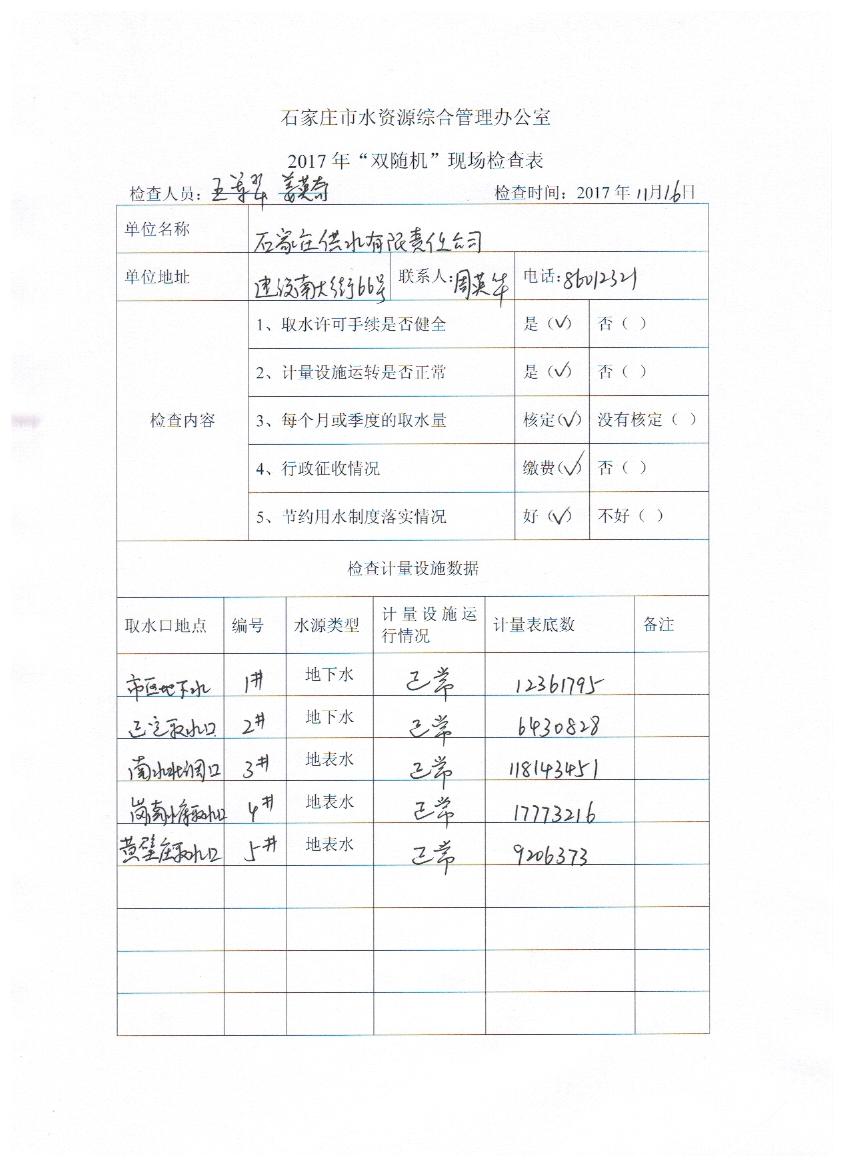 石家庄市水资源综合管理办公室
2017年“双随机”现场检查表
检查人员： 检查时间：2017年11月16日
单位名称 石家庄供水有限责任公司
单位地址 建设南大街66号 联系人:周英华 电话:86012321
检查内容
1、取水许可手续是否健全 是（✓） 否（ ）
2、计量设施运转是否正常 是（✓） 否（ ）
3、每个月或季度的取水量 核定（✓） 没有核定（ ）
4、行政征收情况 缴费（✓） 否（ ）
5、节约用水制度落实情况 好（✓） 不好（ ）
检查计量设施数据
取水口地点 编号 水源类型 计量设施运行情况 计量表底数 备注
市区地下水 1# 地下水 正常 12361795
正定取水口 2# 地下水 正常 6430828
南水北调口 3# 地表水 正常 118143451
岗南水库取水口 4# 地表水 正常 17773216
黄壁庄取水口 5# 地表水 正常 9206373